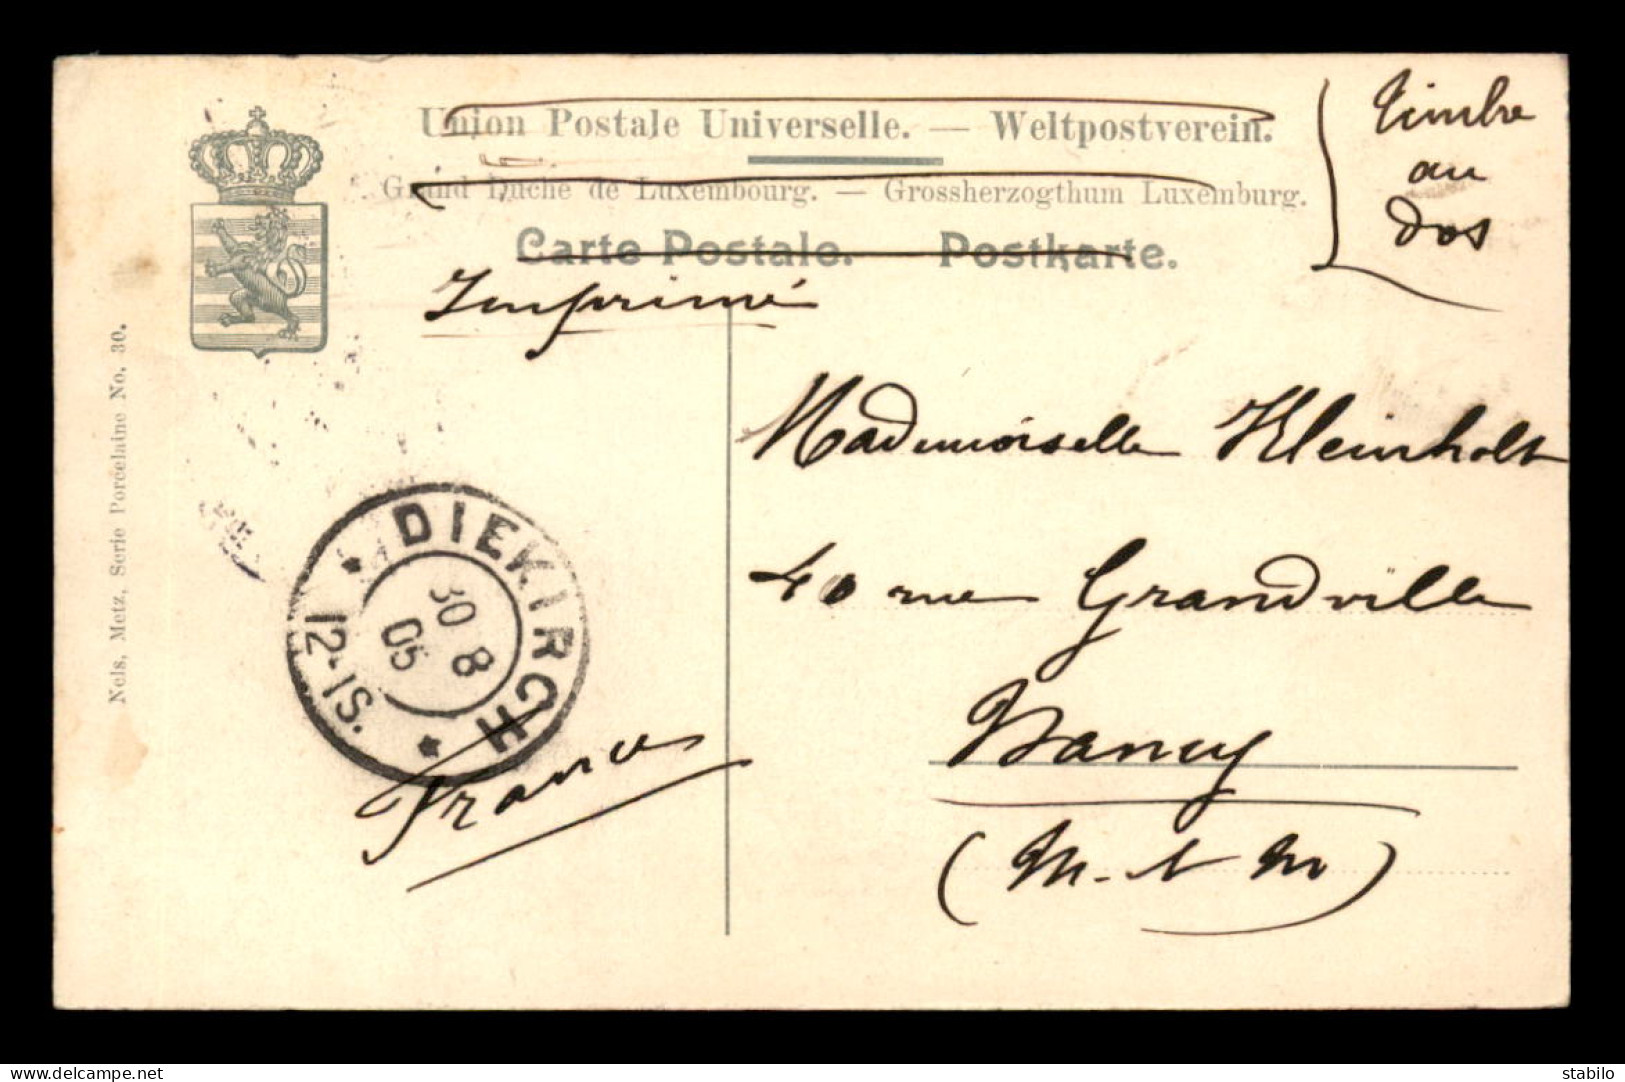 Union Postale Universelle. — Weltpostverein.
Grand Duché de Luxembourg. — Grossherzogthum Luxemburg.
Carte Postale. — Postkarte.
Timbre
au
dos
Imprimé
Mademoiselle Kleinholt
40 rue Grandville
Nancy
(M.-t-M)
France
DIEKIRCH
30 8
05
12-1S.
Nels, Metz, Serie Porcelaine No. 30.
delcampe.net
stabilo